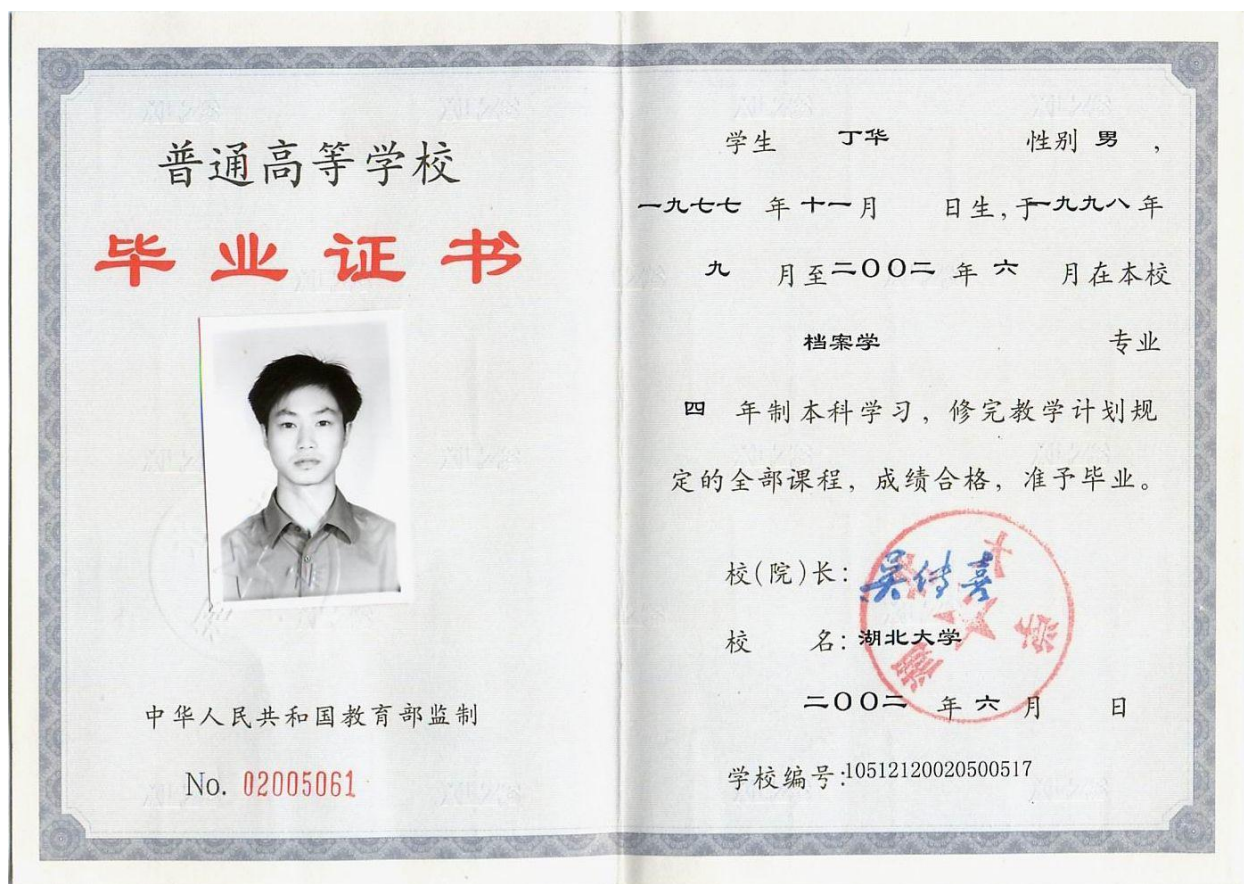 普通高等学校
毕业证书
中华人民共和国教育部监制
No. 02005061
学生 丁华 性别 男 ,
一九七七 年 十一月 日生,于一九九八年
九 月至二〇〇二 年 六 月在本校
档案学 专业
四 年制本科学习，修完教学计划规
定的全部课程，成绩合格，准予毕业。
校(院)长: 吴传喜
校 名: 湖北大学
二〇〇二 年 六 月 日
学校编号:10512120020500517